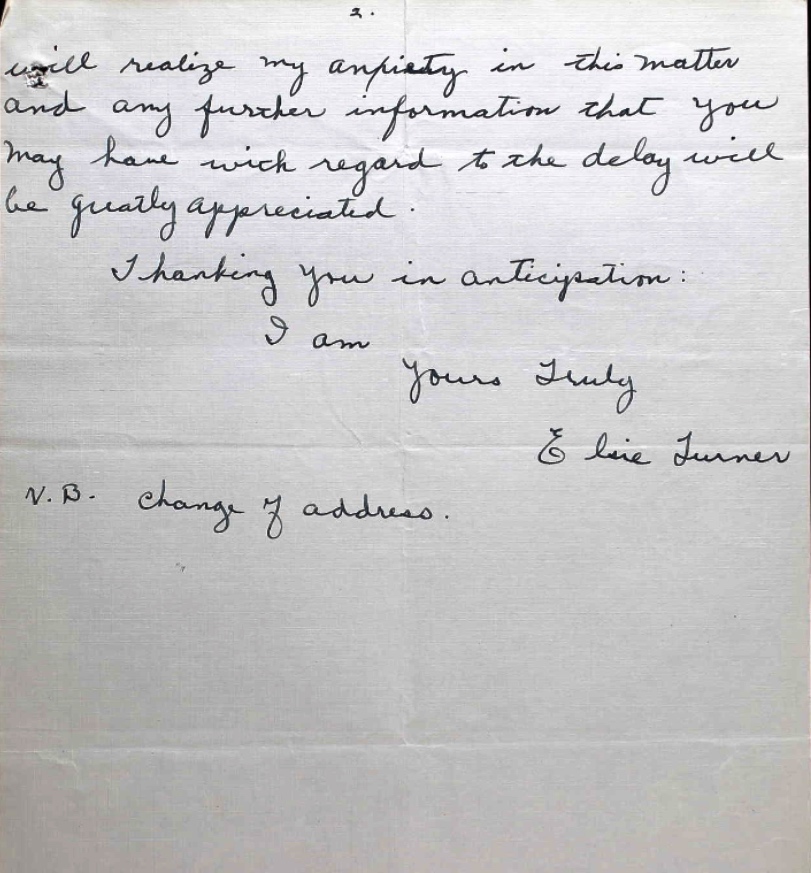 2.
will realize my anxiety in this matter
and any further information that you
may have with regard to the delay will
be greatly appreciated.
Thanking you in anticipation:
I am
Yours Truly
Elsie Turner
N.B. Change of address.